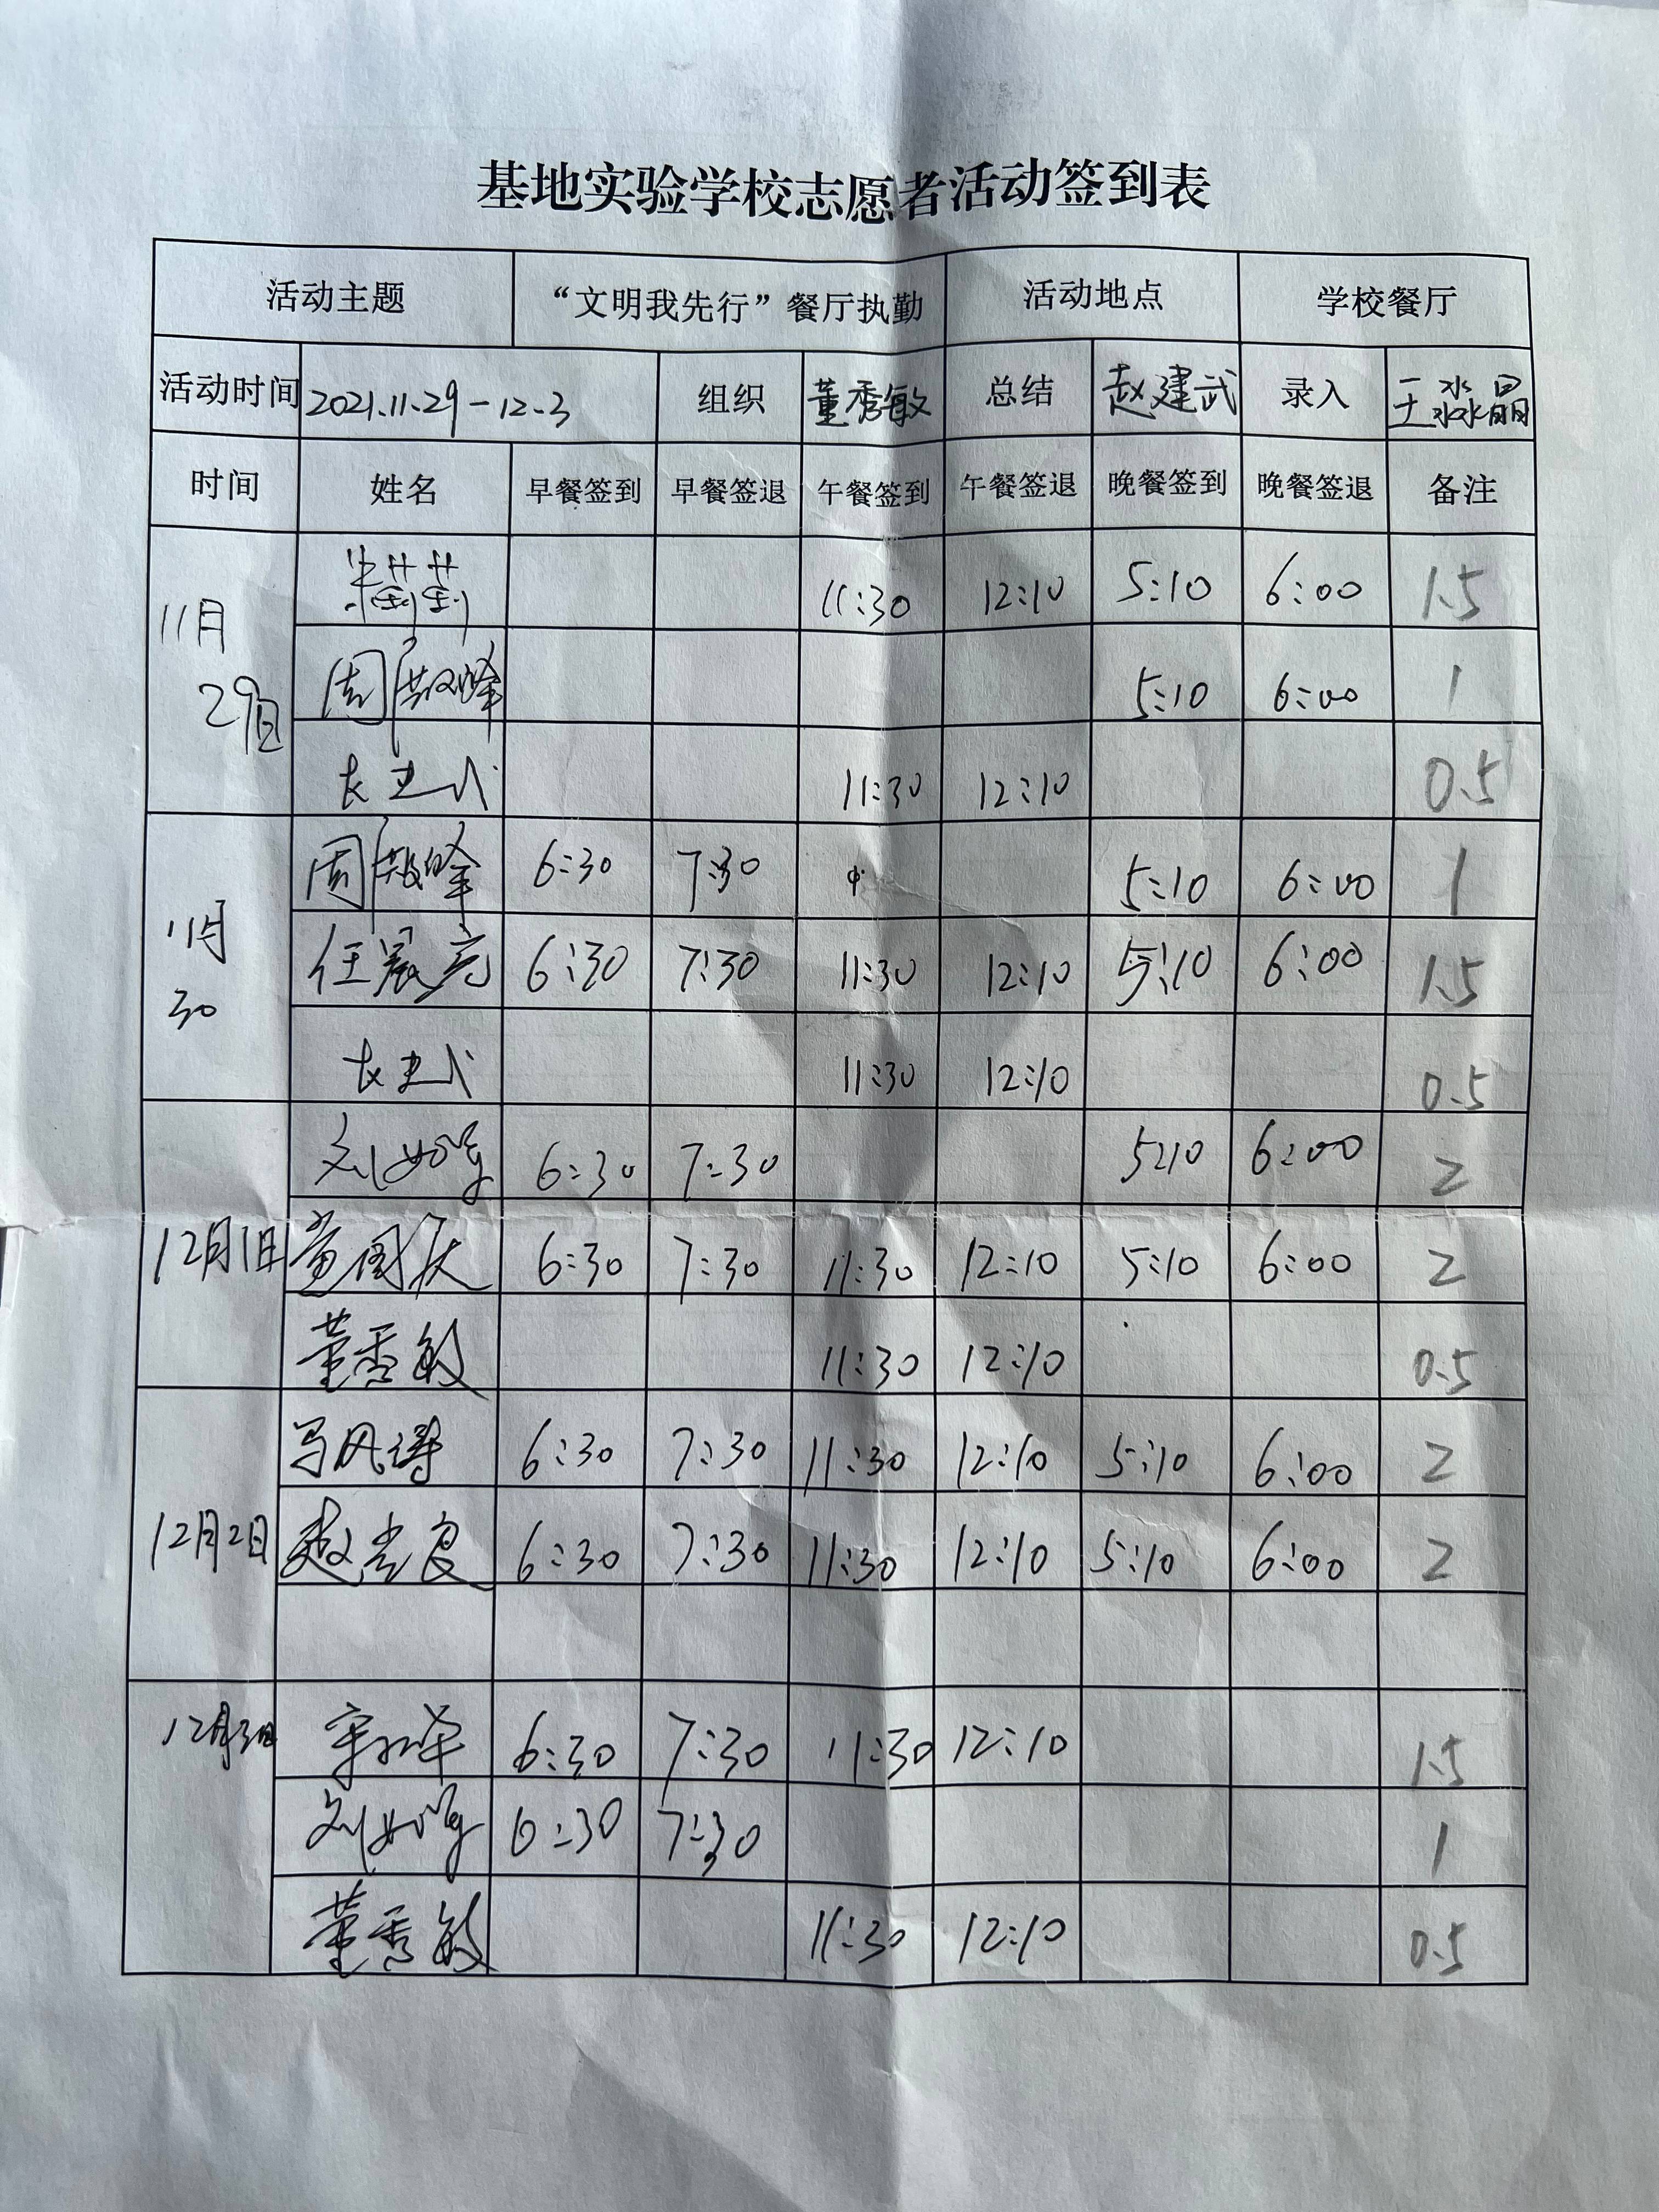 基地实验学校志愿者活动签到表
活动主题 “文明我先行”餐厅执勤 活动地点 学校餐厅
活动时间 2021.11.29-12.3 组织 董秀敏 总结 赵建武 录入 王淼晶
时间 姓名 早餐签到 早餐签退 午餐签到 午餐签退 晚餐签到 晚餐签退 备注
11月29日 朱莉莉 11:30 12:10 5:10 6:00 1.5
周 峰 5:10 6:00 1
11:30 12:10 0.5
11月30 周 峰 6:30 7:30 5:10 6:00 1
任晨亮 6:30 7:30 11:30 12:10 5:10 6:00 1.5
11:30 12:10 0.5
刘 6:30 7:30 5:10 6:00 2
12月1日 董国庆 6:30 7:30 11:30 12:10 5:10 6:00 2
董秀敏 11:30 12:10 0.5
12月2日 马风 6:30 7:30 11:30 12:10 5:10 6:00 2
赵 良 6:30 7:30 11:30 12:10 5:10 6:00 2
12月3日 6:30 7:30 11:30 12:10 1.5
刘 6:30 7:30 1
董秀敏 11:30 12:10 0.5